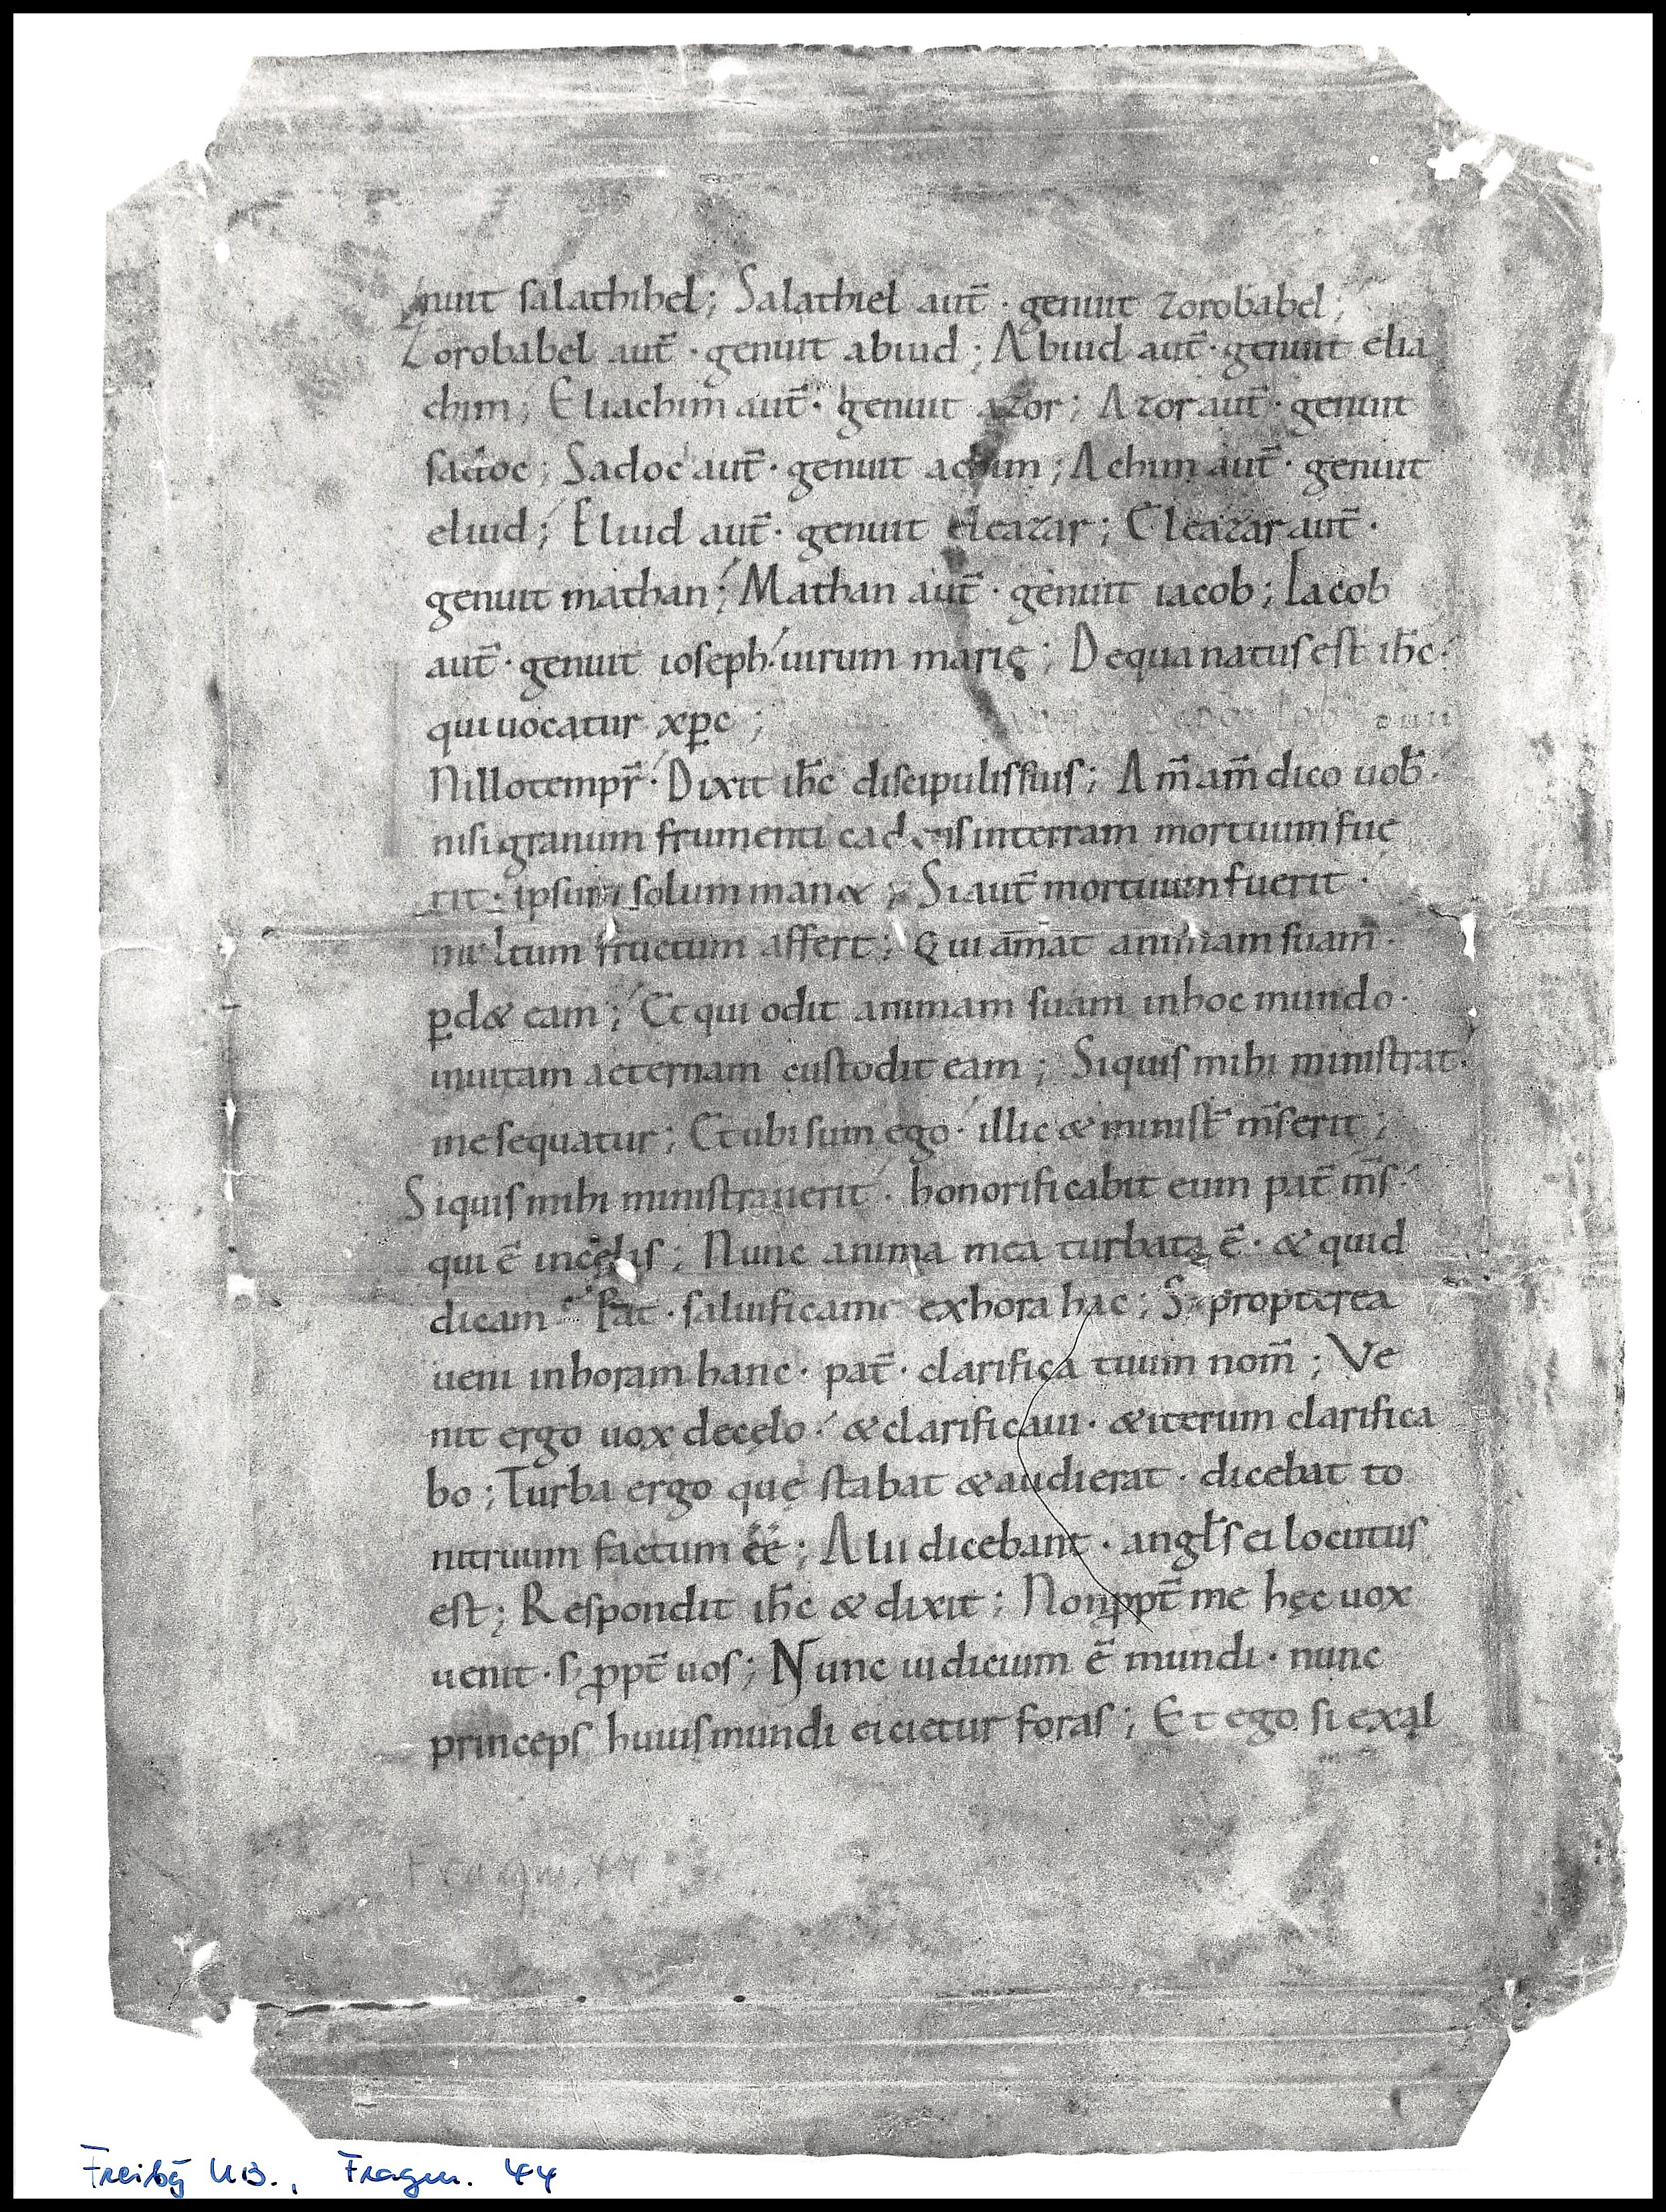 nuit salathihel; Salathiel aut̄ · genuit zorobabel;
Zorobabel aut̄ · genuit abiud; Abiud aut̄ · genuit elia
chim; Eliachim aut̄ · genuit azor; Azor aut̄ · genuit
sadoc; Sadoc aut̄ · genuit achim; Achim aut̄ · genuit
eliud; Eliud aut̄ · genuit eleazar; Eleazar aut̄ ·
genuit mathan; Mathan aut̄ · genuit iacob; Iacob
aut̄ · genuit ioseph · uirum marię; De qua natus est ih̄c ·
qui uocatur xp̄c;
N illo tempr̄ · Dixit ih̄c discipulis suis; Am̄ am̄ dico uob̄ ·
nisi granum frumenti cadens in terram mortuum fue
rit · ipsum solum man&; Si aut̄ mortuum fuerit ·
multum fructum affert; Qui amat animam suam ·
ꝑd& eam; Et qui odit animam suam in hoc mundo ·
in uitam aeternam custodit eam; Si quis mihi ministrat ·
me sequatur; Et ubi sum ego · illic & minist̄ m̄s erit;
Si quis mihi ministrauerit · honorificabit eum pat̄ m̄s ·
qui ē in cęlis; Nunc anima mea turbata ē · & quid
dicam Pat̄ · saluifica me ex hora hac; S; propterea
ueni in horam hanc · pat̄ · clarifica tuum nom̄; Ve
nit ergo uox de cęlo · & clarificaui · & iterum clarifica
bo; Turba ergo quę stabat & audierat · dicebat to
nitruum factum ēē; Alii dicebant · angl̄s ei locutus
est; Respondit ih̄c & dixit; Non ꝓpt̄ me hęc uox
uenit · s; ꝓpt̄ uos; Nunc iudicium ē mundi · nunc
princeps huius mundi eicietur foras; Et ego si exal
Fragm. 44
Freibg UB., Fragm. 44